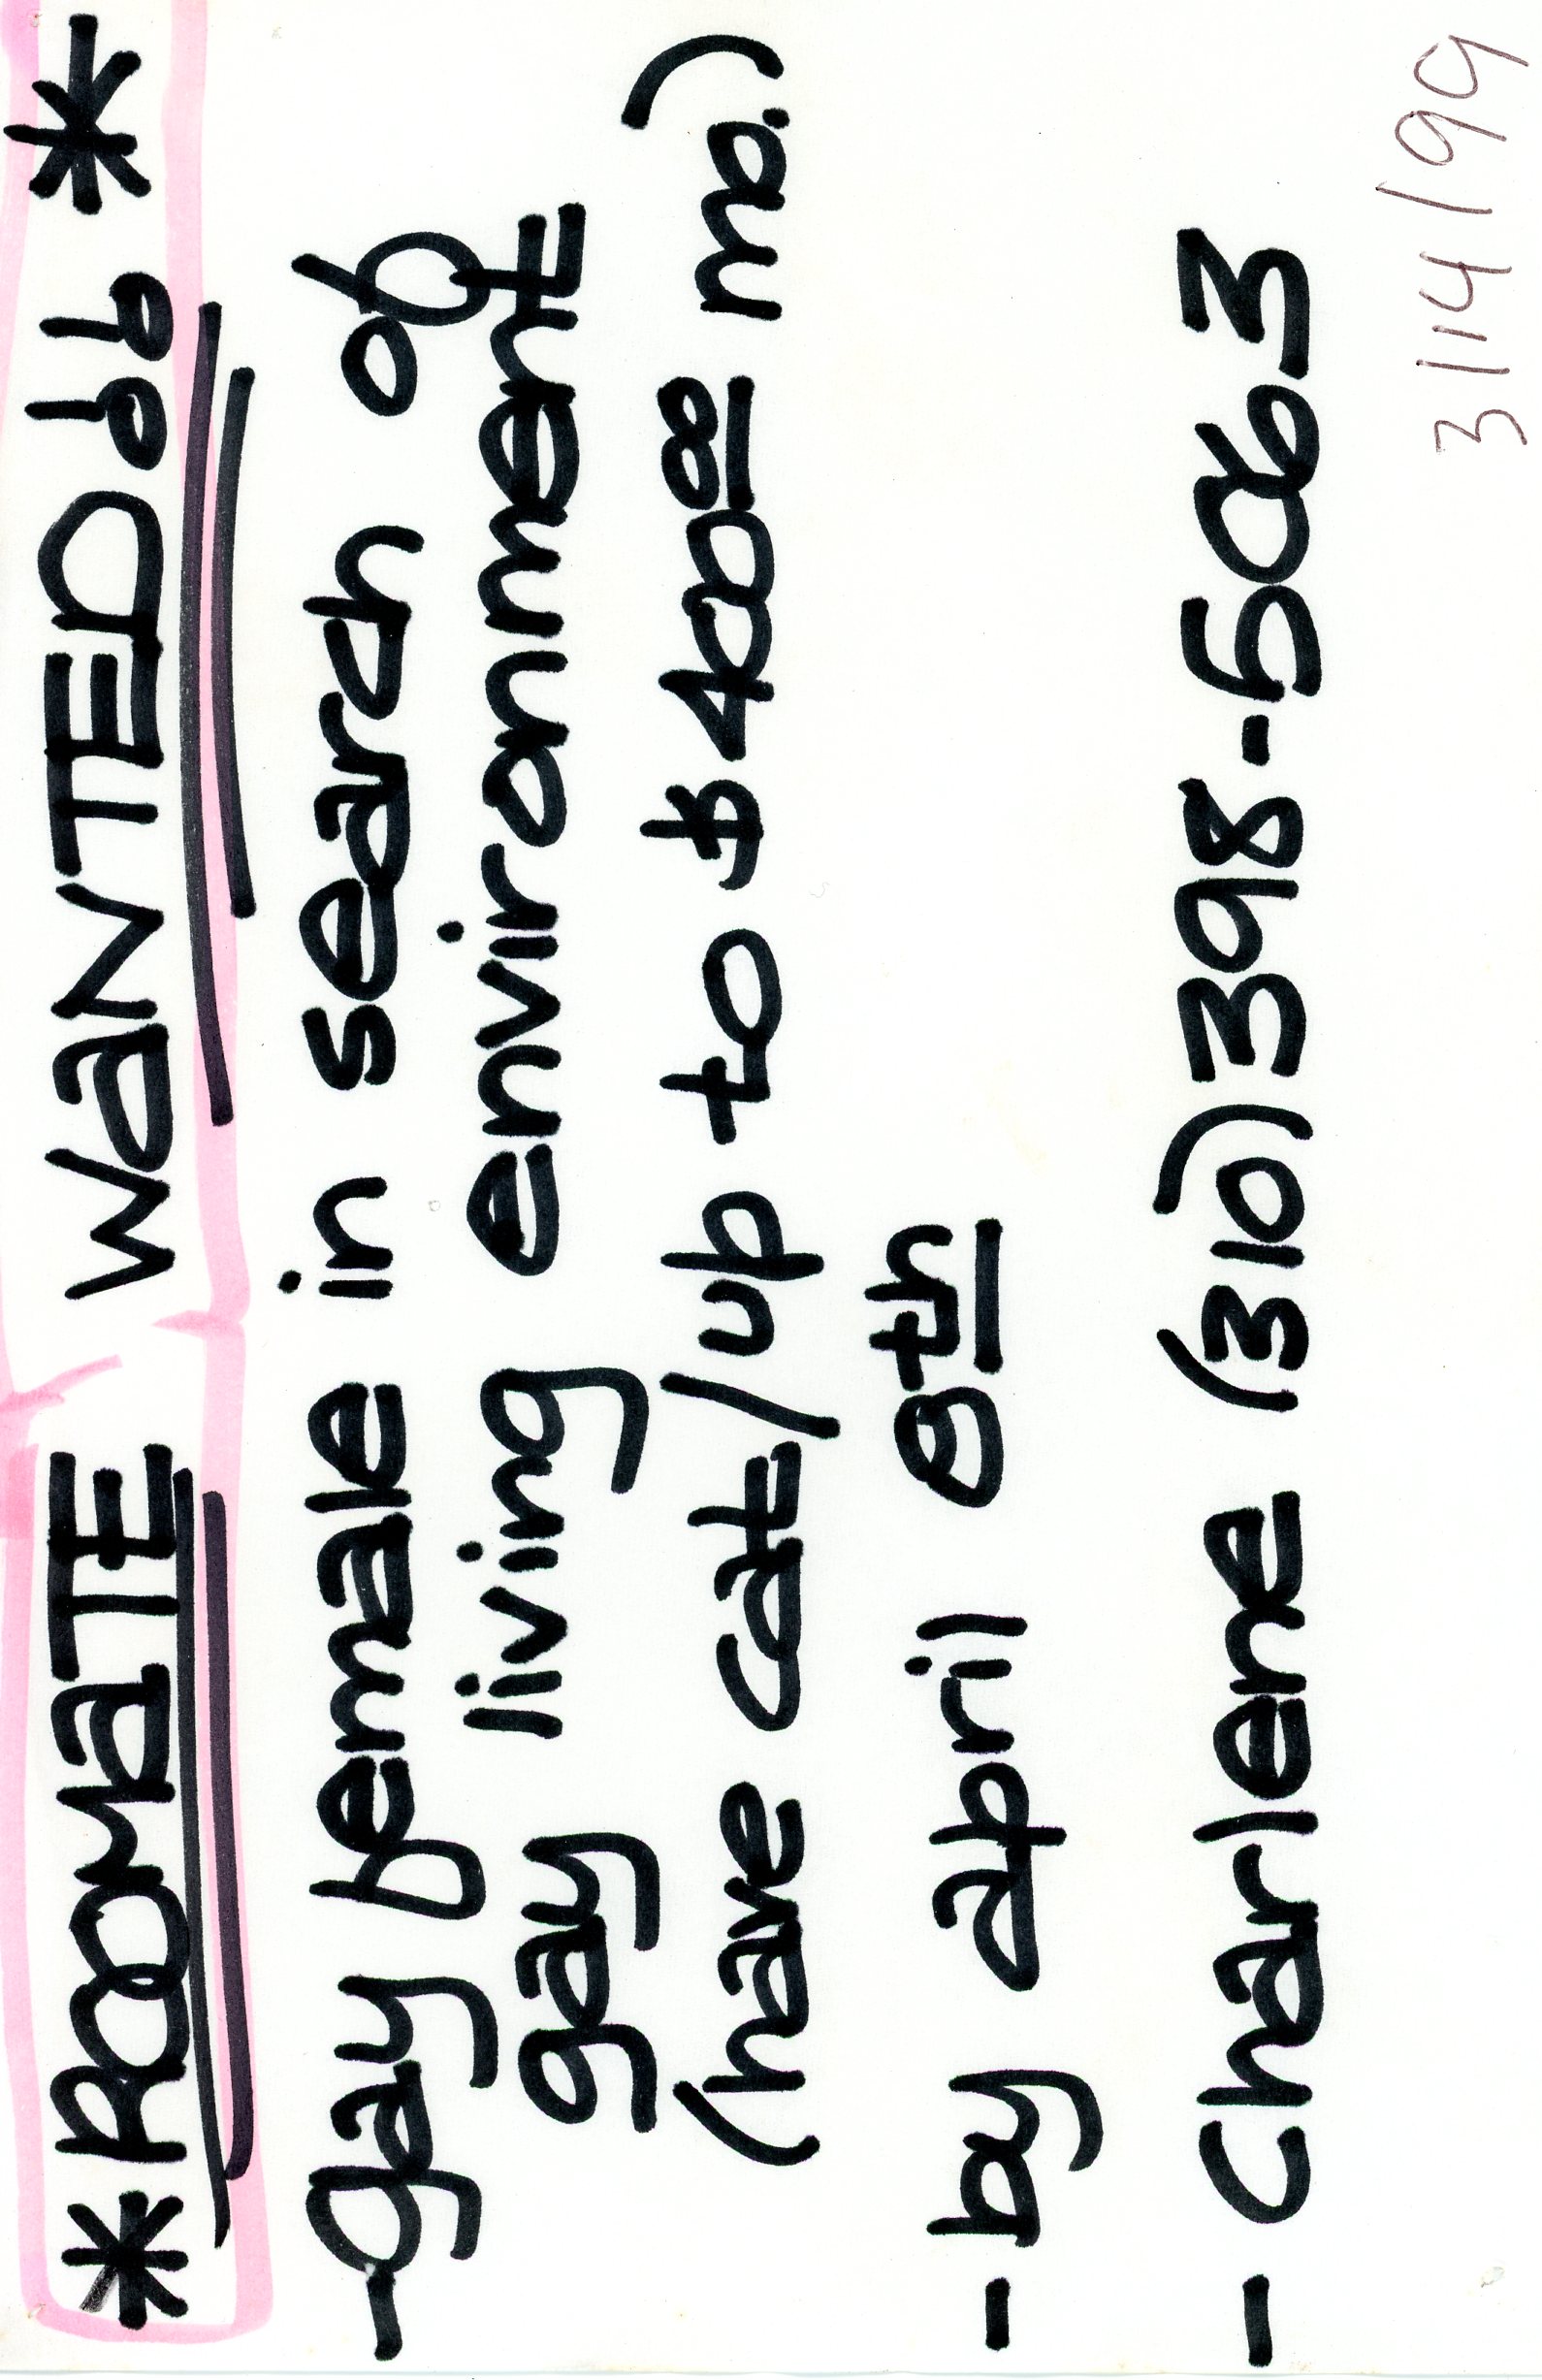 * ROOMaTE WaNTED!! *
-gay female in search of
gay living environment
(have cat/up to $400⁰⁰ mo.)
- by april 8th
- Charlene (310)398-5063
3/14/99